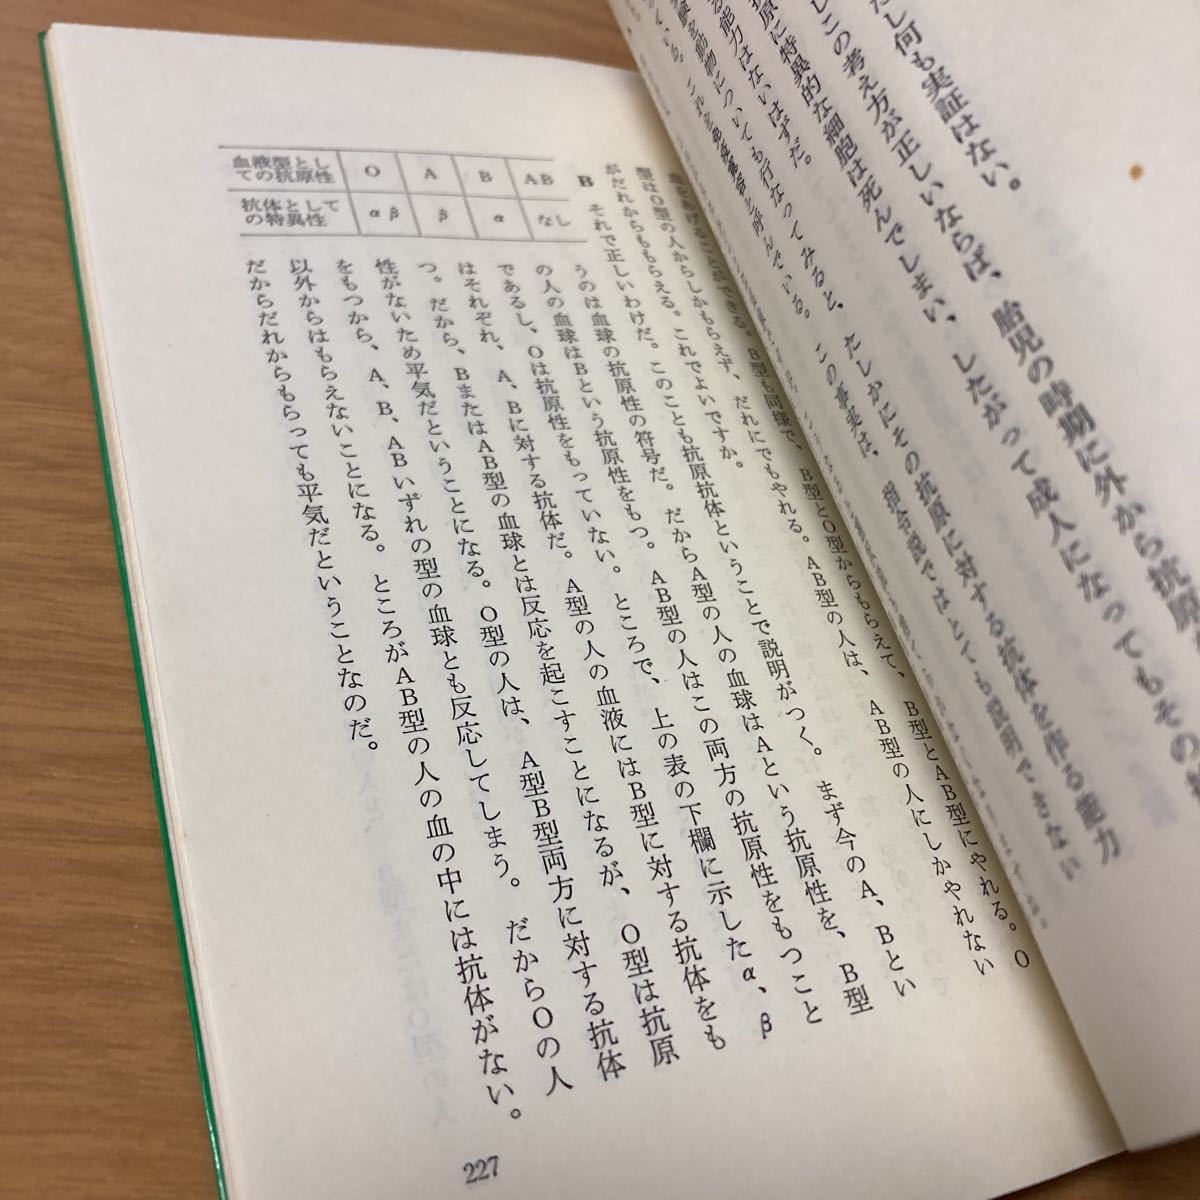 だし何も実証はない。
しこの考え方が正しいならば、胎児の時期に外から抗原
原に特異的な細胞は死んでしまい、したがって成人になってもその
る能力はないはずだ。
験を動物についても行なってみると、たしかにその抗原に対する抗体を作る能力
この事実は、指令説ではとても説明できない
血をあげることができる。B型も同様で、B型とO型からもらえて、B型とAB型にやれる。O
型はO型の人からしかもらえず、だれにでもやれる。AB型の人は、AB型の人にしかやれない
がだれからももらえる。これでよいですか。
B　それで正しいわけだ。このことも抗原抗体ということで説明がつく。まず今のA、Bとい
うのは血球の抗原性の符号だ。だからA型の人の血球はAという抗原性を、B型
の人の血球はBという抗原性をもつ。AB型の人はこの両方の抗原性をもつこと
であるし、Oは抗原性をもっていない。ところで、上の表の下欄に示したα、β
はそれぞれ、A、Bに対する抗体だ。A型の人の血液にはB型に対する抗体をも
つ。だから、BまたはAB型の血球とは反応を起こすことになるが、O型は抗原
性がないため平気だということになる。O型の人は、A型B型両方に対する抗体
をもつから、A、B、ABいずれの型の血球とも反応してしまう。だからOの人
以外からはもらえないことになる。ところがAB型の人の血の中には抗体がない。
だからだれからもらっても平気だということなのだ。
血液型とし
ての抗原性 O A B AB
抗体として
の特異性 α β β α なし
227